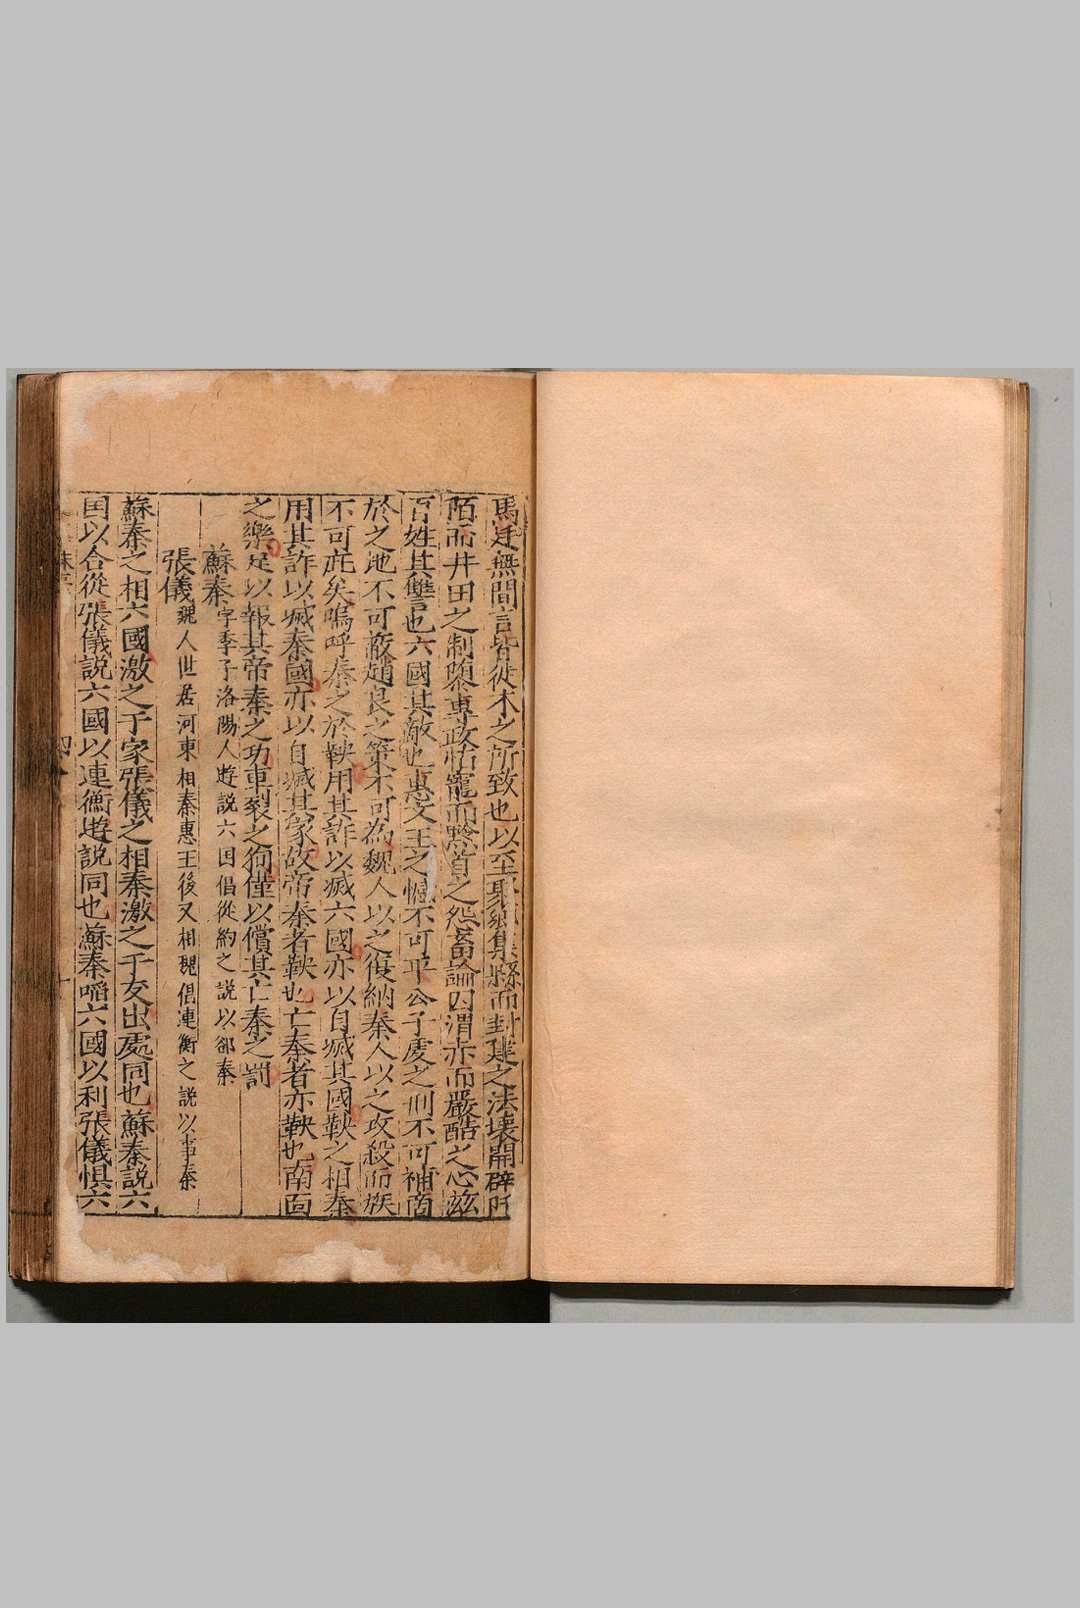 馬迁無間言皆從木之所致也以至聚鄉集縣而封建之法壞開辟阡
陌而井田之制隳專政怙寵而黔首之怨畜論囚渭赤而嚴酷之心滋
百姓其讐也六國其敵也惠文王之憾不可平公子虔之刑不可補商
於之地不可蔽趙良之策不可為魏人以之復納秦人以之攻殺而族
不可庇矣嗚呼秦之於鞅用其詐以滅六國亦以自滅其國鞅之相秦
用其詐以滅秦國亦以自滅其家故帝秦者鞅也亡秦者亦鞅也南面
之樂足以報其帝秦之功車裂之狥僅以償其亡秦之罰
蘇秦字季子洛陽人遊説六国倡從約之説以郤秦
張儀魏人世居河東相秦惠王後又相魏倡連衡之説以事秦
蘇秦之相六國激之于家張儀之相秦激之于友出處同也蘇秦説六
国以合從張儀説六國以連衡遊説同也蘇秦啗六國以利張儀惧六